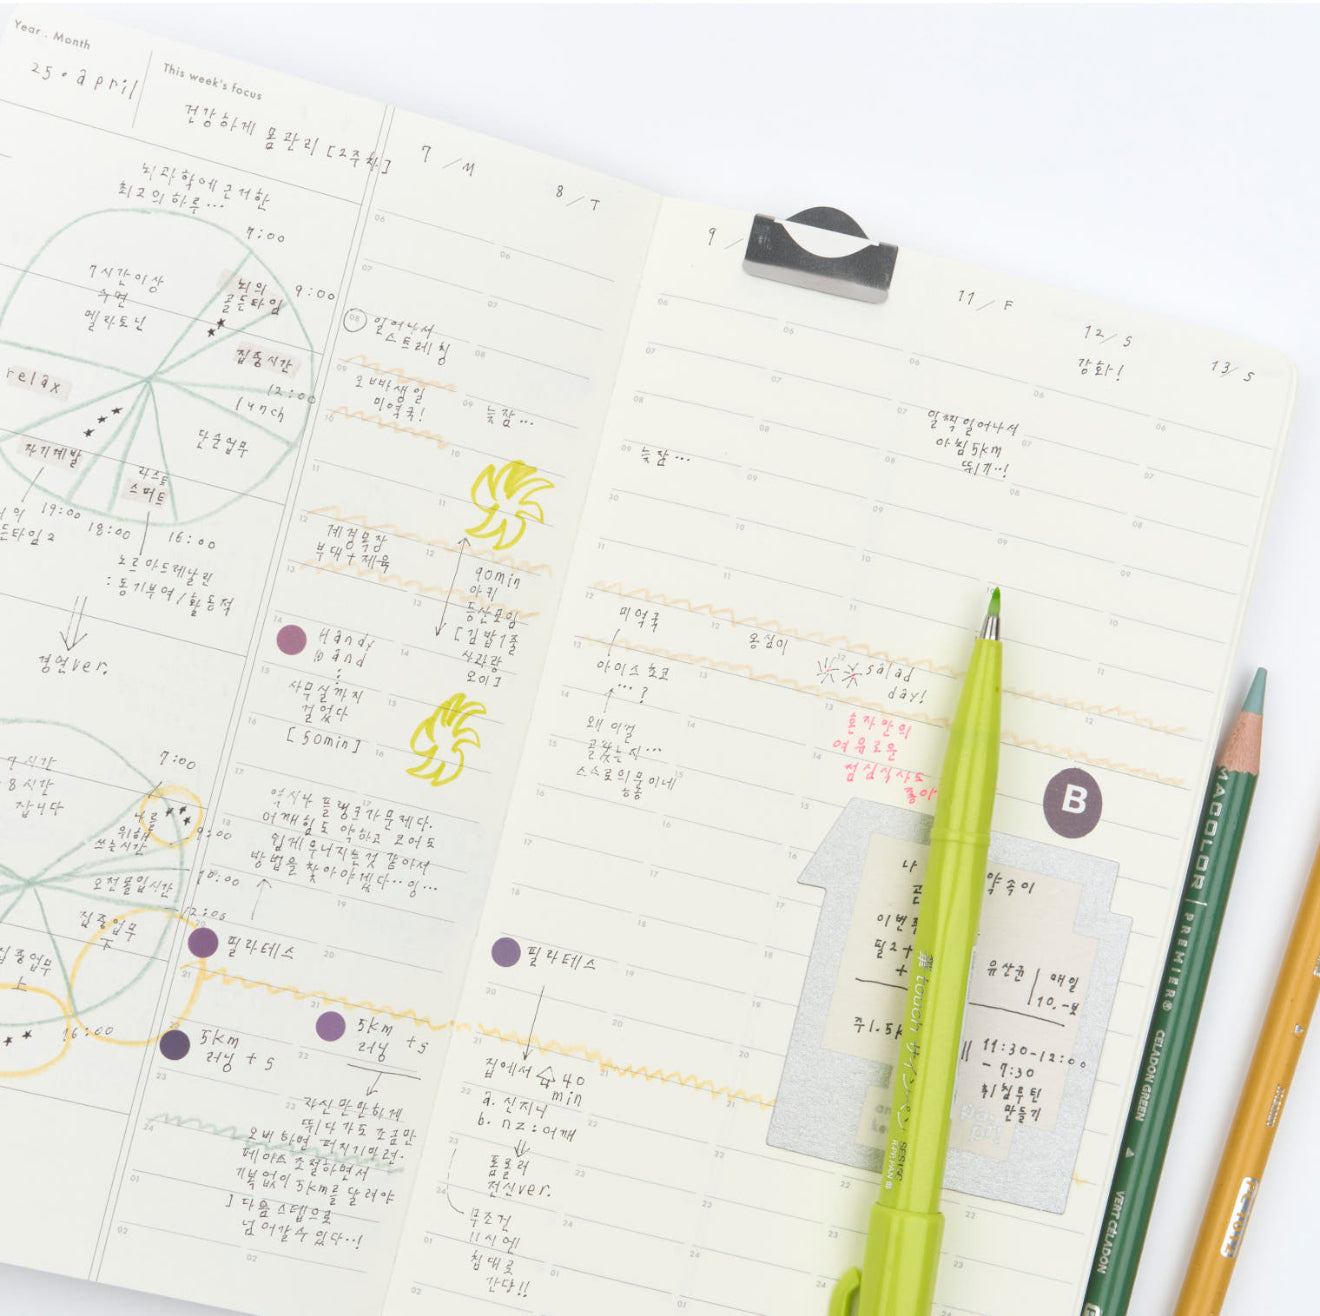 Year . Month
25 . april
This week's focus
건강하게 몸관리 [2주차]
뇌과학에 근거한
최고의 하루...
7:00
7시간이상
수면
멜라토닌
뇌의
골든타임
9:00
집중시간
12:00
lunch
단순업무
relax
자기계발
라스트
스퍼트
19:00
18:00
16:00
노르아드레날린
: 동기부여 / 활동적
경언ver.
7:00
8시간
잡니다
나를
위해
쓰는시간
9:00
오전몰입시간
10:00
12:00
집중업무
下
집중업무
上
16:00
7 / M
일어나서
스트레칭
오빠생일
미역국!
계경목장
부대+제육
Handy
band
:
사무실까지
걸었다
[50min]
역시나 플랭크가 문제다.
어깨힘도 약하고 코어도
쉽게 무너지는것 같아서
방법을 찾아야겠다..잉...
필라테스
5km
러닝 + S
8 / T
늦잠...
90min
아키
등산모임
[김밥1줄
사과랑
오이]
5km
러닝 +S
자신만만하게
뛰다가도 조금만
오버하면 퍼지기마련.
페이스 조절하면서
기복없이 5km를 달려야
다음 스텝으로
넘어갈수있다..!
9 /
늦잠...
미역국
아이스초코
...?
왜 이걸
골랐는지...
스스로의문이네
필라테스
집에서 40
min
a. 신지니
b. nz:어깨
폼롤러
전신ver.
무조건
11시에
침대로
간당!!
옹심이
11 / F
일찍일어나서
아침5km
뛰기..!
salad
day!
혼자만의
여유로운
점심식사도
좋아
12 / S
감화!
13 / S
B
나
약속이
이번주
필2+
+
유산균 | 매일
10.-보
주1.5k
11:30-12:00
- 7:30
취침루틴
만들기
touch サインペン
SES15C
MACOLOR | PREMIER® CELADON GREEN
VERT CELADON